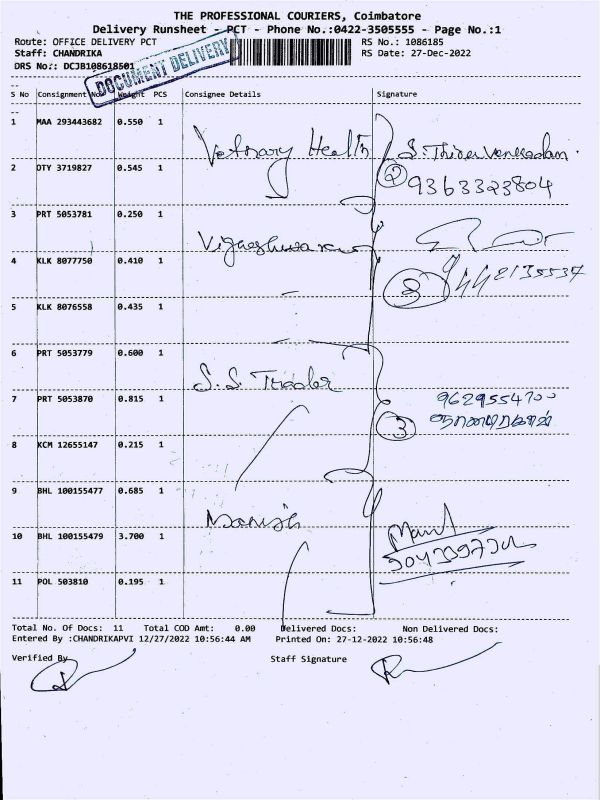 THE PROFESSIONAL COURIERS, Coimbatore
Delivery Runsheet - PCT - Phone No.:0422-3505555 - Page No.:1
Route: OFFICE DELIVERY PCT RS No.: 1086185
Staff: CHANDRIKA RS Date: 27-Dec-2022
DRS No.: DCJB108618501
DOCUMENT DELIVERY
S No Consignment No Weight PCS Consignee Details Signature
1 MAA 293443682 0.550 1
Health S. Thiruvenkadam.
2 OTY 3719827 0.545 1
② 9363323804
3 PRT 5053781 0.250 1
4 KLK 8077750 0.410 1
③
5 KLK 8076558 0.435 1
6 PRT 5053779 0.600 1
S. S. Trader
7 PRT 5053870 0.815 1
③
8 KCM 12655147 0.215 1
9 BHL 100155477 0.685 1
Manish
10 BHL 100155479 3.700 1
11 POL 503810 0.195 1
Total No. Of Docs: 11 Total COD Amt: 0.00 Delivered Docs: Non Delivered Docs:
Entered By :CHANDRIKAPVI 12/27/2022 10:56:44 AM Printed On: 27-12-2022 10:56:48
Verified By Staff Signature